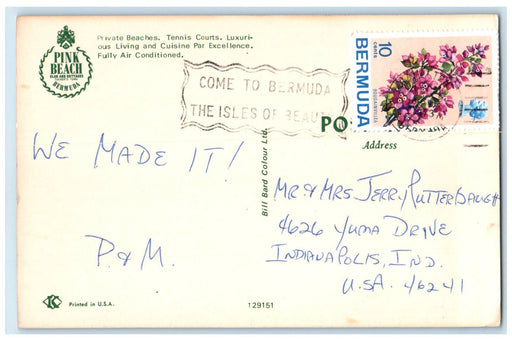 PINK
BEACH
CLUB AND COTTAGES
BERMUDA
Private Beaches. Tennis Courts. Luxuri-
ous Living and Cuisine Par Excellence.
Fully Air Conditioned.
COME TO BERMUDA
THE ISLES OF BEAUT
10
cents
BERMUDA
BOUGAINVILLEA
PO
Address
WE MADE IT!
P & M.
Bill Bard Colour Ltd.
MR. & MRS JERRY RUTTERBAUGH
4626 YUMA DRIVE
INDIANAPOLIS, IND.
U.S.A. 46241
Printed in U.S.A.
129151